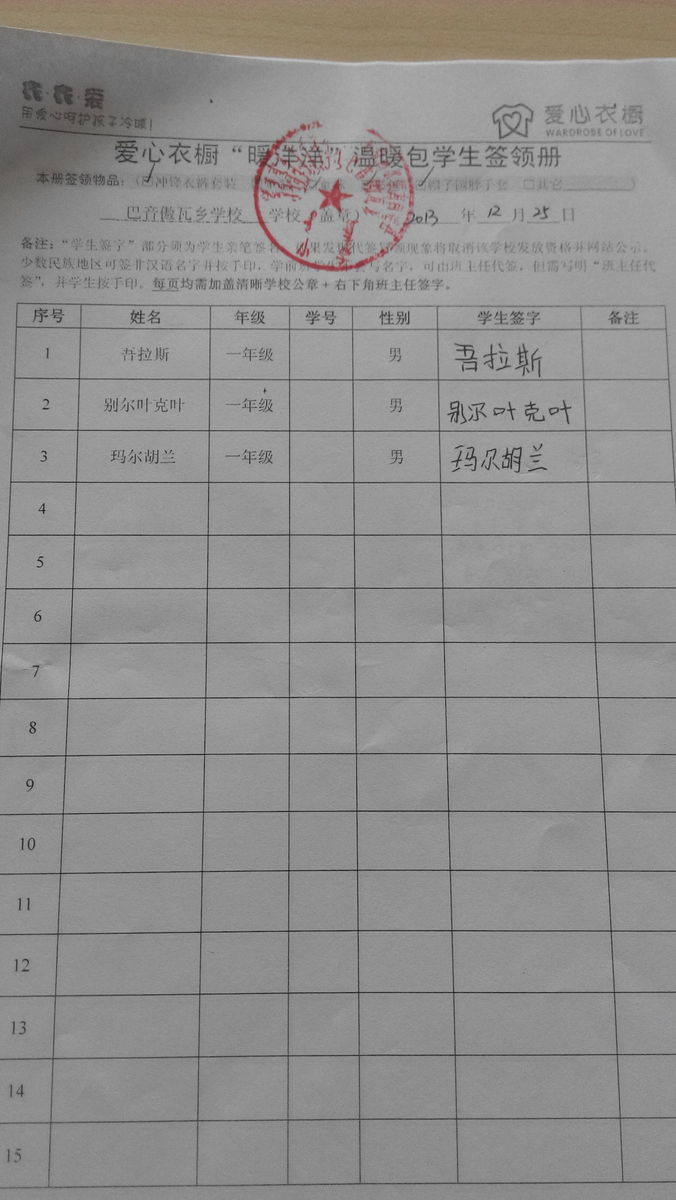 衣·衣·爱
用爱心呵护孩子冷暖!
爱心衣橱
WARDROBE OF LOVE
爱心衣橱“暖洋洋”温暖包学生签领册
本册签领物品:(☑冲锋衣裤套装 帽子围脖手套 □其它 )
巴音傲瓦乡学校 学校(盖章) 2013 年 12 月 25 日
备注:“学生签字”部分须为学生亲笔签名,如果发现代签冒领现象将取消该学校发放资格并网站公示。
少数民族地区可签非汉语名字并按手印,学前班学生不会写名字,可由班主任代签,但需写明“班主任代
签”,并学生按手印。每页均需加盖清晰学校公章+右下角班主任签字。
序号 姓名 年级 学号 性别 学生签字 备注
1 吾拉斯 一年级 男 吾拉斯
2 别尔叶克叶 一年级 男 别尔叶克叶
3 玛尔胡兰 一年级 男 玛尔胡兰
4
5
6
7
8
9
10
11
12
13
14
15